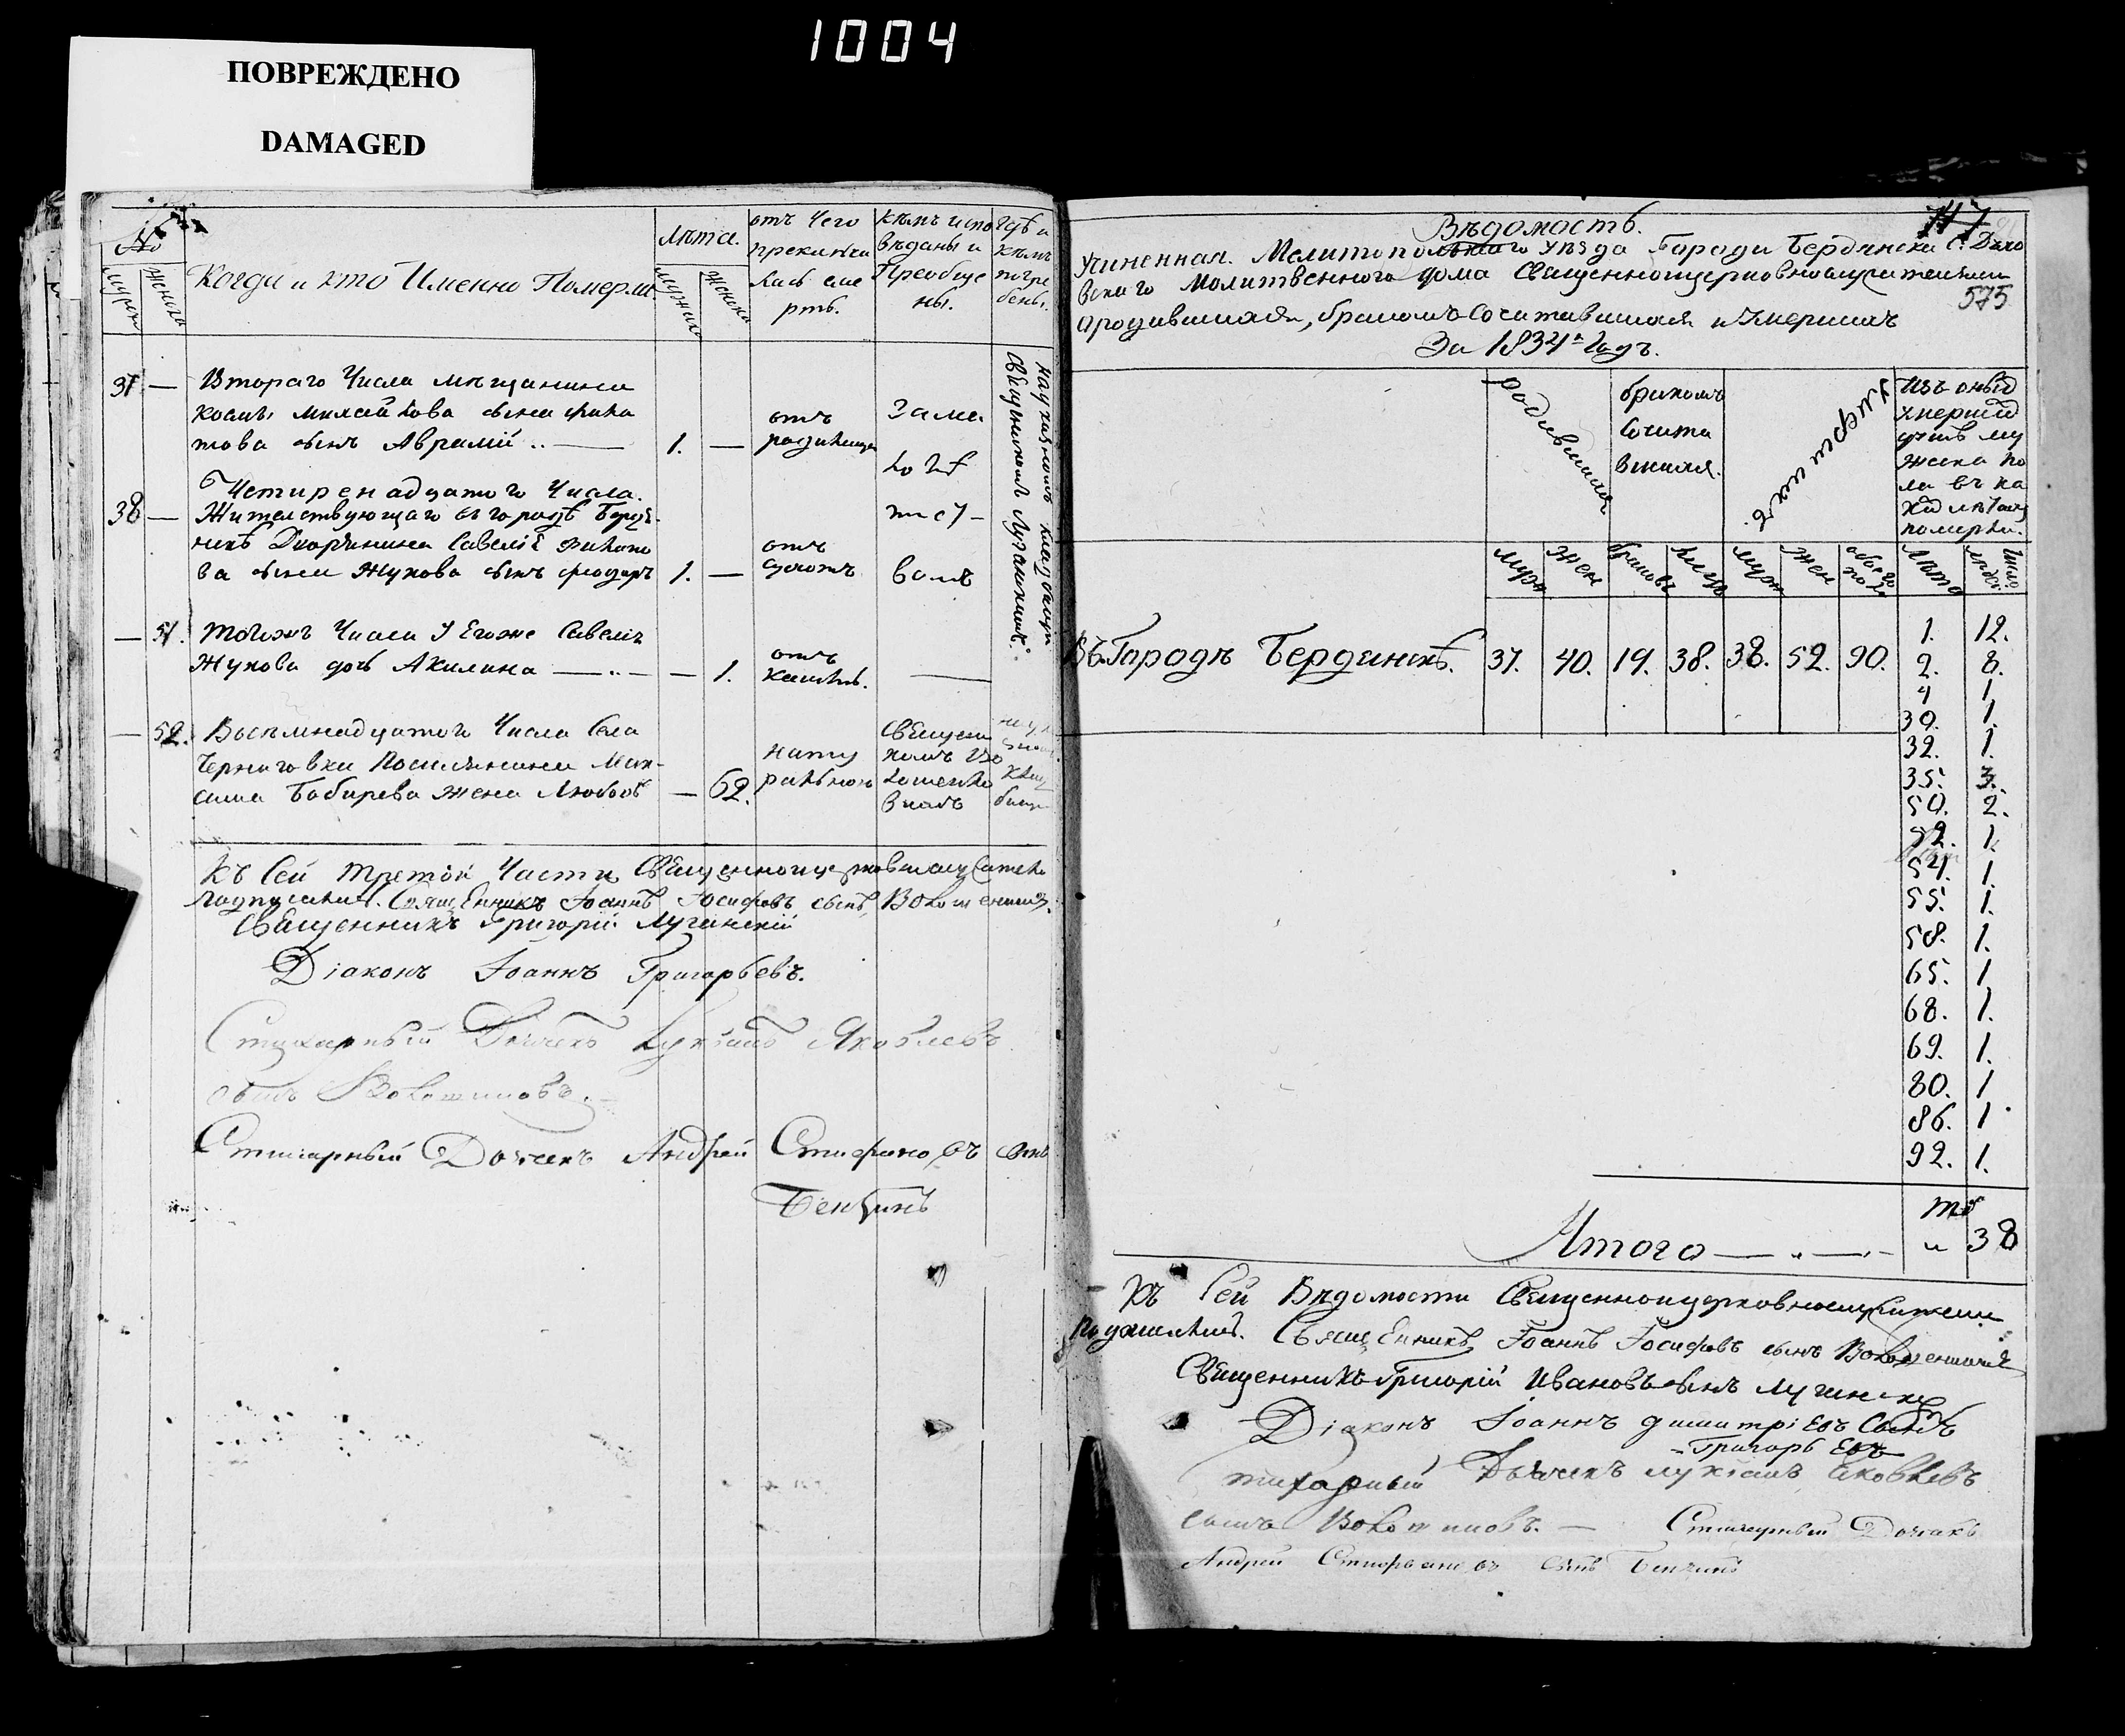 1004
ПОВРЕЖДЕНО
DAMAGED
№
мужеск
женска
Когда и кто Именно Померли.
Лѣта.
мужска
женска
отъ Чего
прекычи
лась сме
рть.
Кѣмъ испо
вѣданы и
Преобще
ны.
Гдѣ и
кѣмъ
погре
бены.
37 — Втораго Числа мѣщанина
Козмы Михайлова сына Фила
това сынъ Аврамій .. — 1. —
отъ
родимца
За ма
лолѣ
тст-
вомъ
на
кладбищи
Священникомъ Лугинскимъ.
38 — Четиренадцатого Числа.
Жителствующаго въ городѣ Бердя-
нскѣ Дворянина Савелія Филипо
ва сына Жукова сынъ Феодоръ 1. —
отъ
— 51. тогожъ Числа У Егоже Савелія
Жукова дочь Акилина — .. — — 1.
отъ
кашля.
— 52. Восемнадцатого Числа Села
Черниговки Поселянина Мак-
сима Бобирева жена Любовь — 62.
нату
ральною
Священи
комъ Во
лошенко
вимъ
клад
бищи
Къ Сей Третой Части Священноцерковнослужители
Подписались. Священникъ Іоаннъ Іосифовъ сынъ
Священникъ Григорій Лугинскій
Діаконъ Іоаннъ Григорьевъ.
Стихарный Дьячекъ Лукіанъ Яковлевъ
сынъ Волошиновъ.
Стихарный Дьячекъ Андрей Стифановъ сынъ
Бензинъ
147
Вѣдомость.
Учиненная Мелитопольскаго уѣзда Города Бердянска С. Духо
вскаго Молитвенного дома Священноцерковнослужителями
575
Ородившихся, бракомъ Сочитавшихся и Умершихъ
За 1834й Годъ.
родившихся
бракомъ
Сочита
вшихся.
Умершихъ.
Изъ оныхъ
умершихъ
душъ му
жеска по
ла въ ка
хихъ лѣтахъ
померли.
муж
жен
браковъ
лицъ
муж
жен
обоего
пола
Лѣта
Число
людей
Въ Городѣ Бердянскѣ. 37. 40. 19. 38. 38. 52. 90.
1. 12.
2. 8.
4 1.
30. 1.
32. 1.
35. 3.
50. 2.
52. 1.
54. 1.
55. 1.
58. 1.
65. 1
68. 1.
69. 1.
80. 1
86. 1
92. 1.
Итого — .. — .. — 38
Къ Сей Вѣдомости Священноцерковнослужители
Подписались. Священникъ Іоаннъ Іосифовъ сынъ
Священникъ Григорій Ивановъ сынъ Лугинскій
Діаконъ Іоаннъ Димитріевъ Сынъ
Григорьевъ
тихарный Дьячекъ Лукіанъ Яковлевъ
сынъ Волошиновъ. — Стихарный Дьячекъ
Андрей Стифановъ сынъ Бензинъ